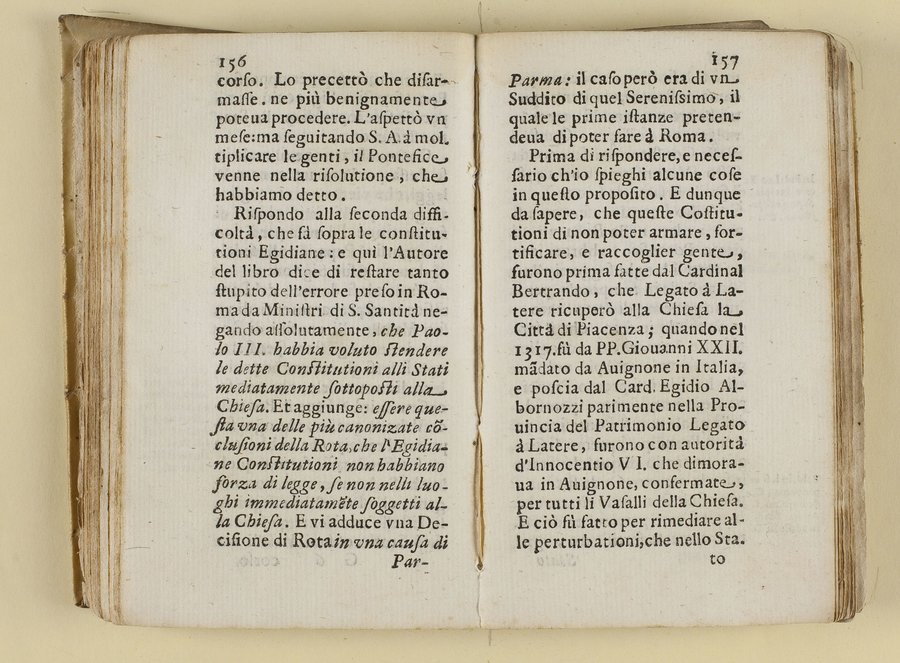 156
corſo. Lo precettò che diſar-
maſſe. ne più benignamente
poteua procedere. L'aſpettò vn
meſe: ma ſeguitando S. A. à mol.
tiplicare le genti, il Pontefice
venne nella riſolutione, che
habbiamo detto.
Riſpondo alla ſeconda diffi-
coltà, che fà ſopra le conſtitu-
tioni Egidiane: e quì l'Autore
del libro dice di reſtare tanto
ſtupito dell'errore preſo in Ro-
ma da Miniſtri di S. Santità ne-
gando aſſolutamente, che Pao-
lo III. habbia voluto ſtendere
le dette Conſtitutioni alli Stati
mediatamente ſottopoſti alla
Chieſa. Et aggiunge: eſſere que-
ſta vna delle più canonizate cõ-
cluſioni della Rota, che l'Egidia-
ne Conſtitutioni non habbiano
forza di legge, ſe non nelli luo-
ghi immediatamẽte ſoggetti al-
la Chieſa. E vi adduce vna De-
ciſione di Rota in vna cauſa di
Par-
157
Parma: il caſo però era di vn
Suddito di quel Sereniſsimo, il
quale le prime iſtanze preten-
deua di poter fare à Roma.
Prima di riſpondere, e neceſ-
ſario ch'io ſpieghi alcune coſe
in queſto propoſito. E dunque
da ſapere, che queſte Coſtitu-
tioni di non poter armare, for-
tificare, e raccoglier gente,
furono prima fatte dal Cardinal
Bertrando, che Legato à La-
tere ricuperò alla Chieſa la
Città di Piacenza; quando nel
1317. fù da PP. Giouanni XXII.
mãdato da Auignone in Italia,
e poſcia dal Card. Egidio Al-
bornozzi parimente nella Pro-
uincia del Patrimonio Legato
à Latere, furono con autorità
d'Innocentio VI. che dimora-
ua in Auignone, confermate,
per tutti li Vaſalli della Chieſa.
E ciò fù fatto per rimediare al-
le perturbationi, che nello Sta.
to